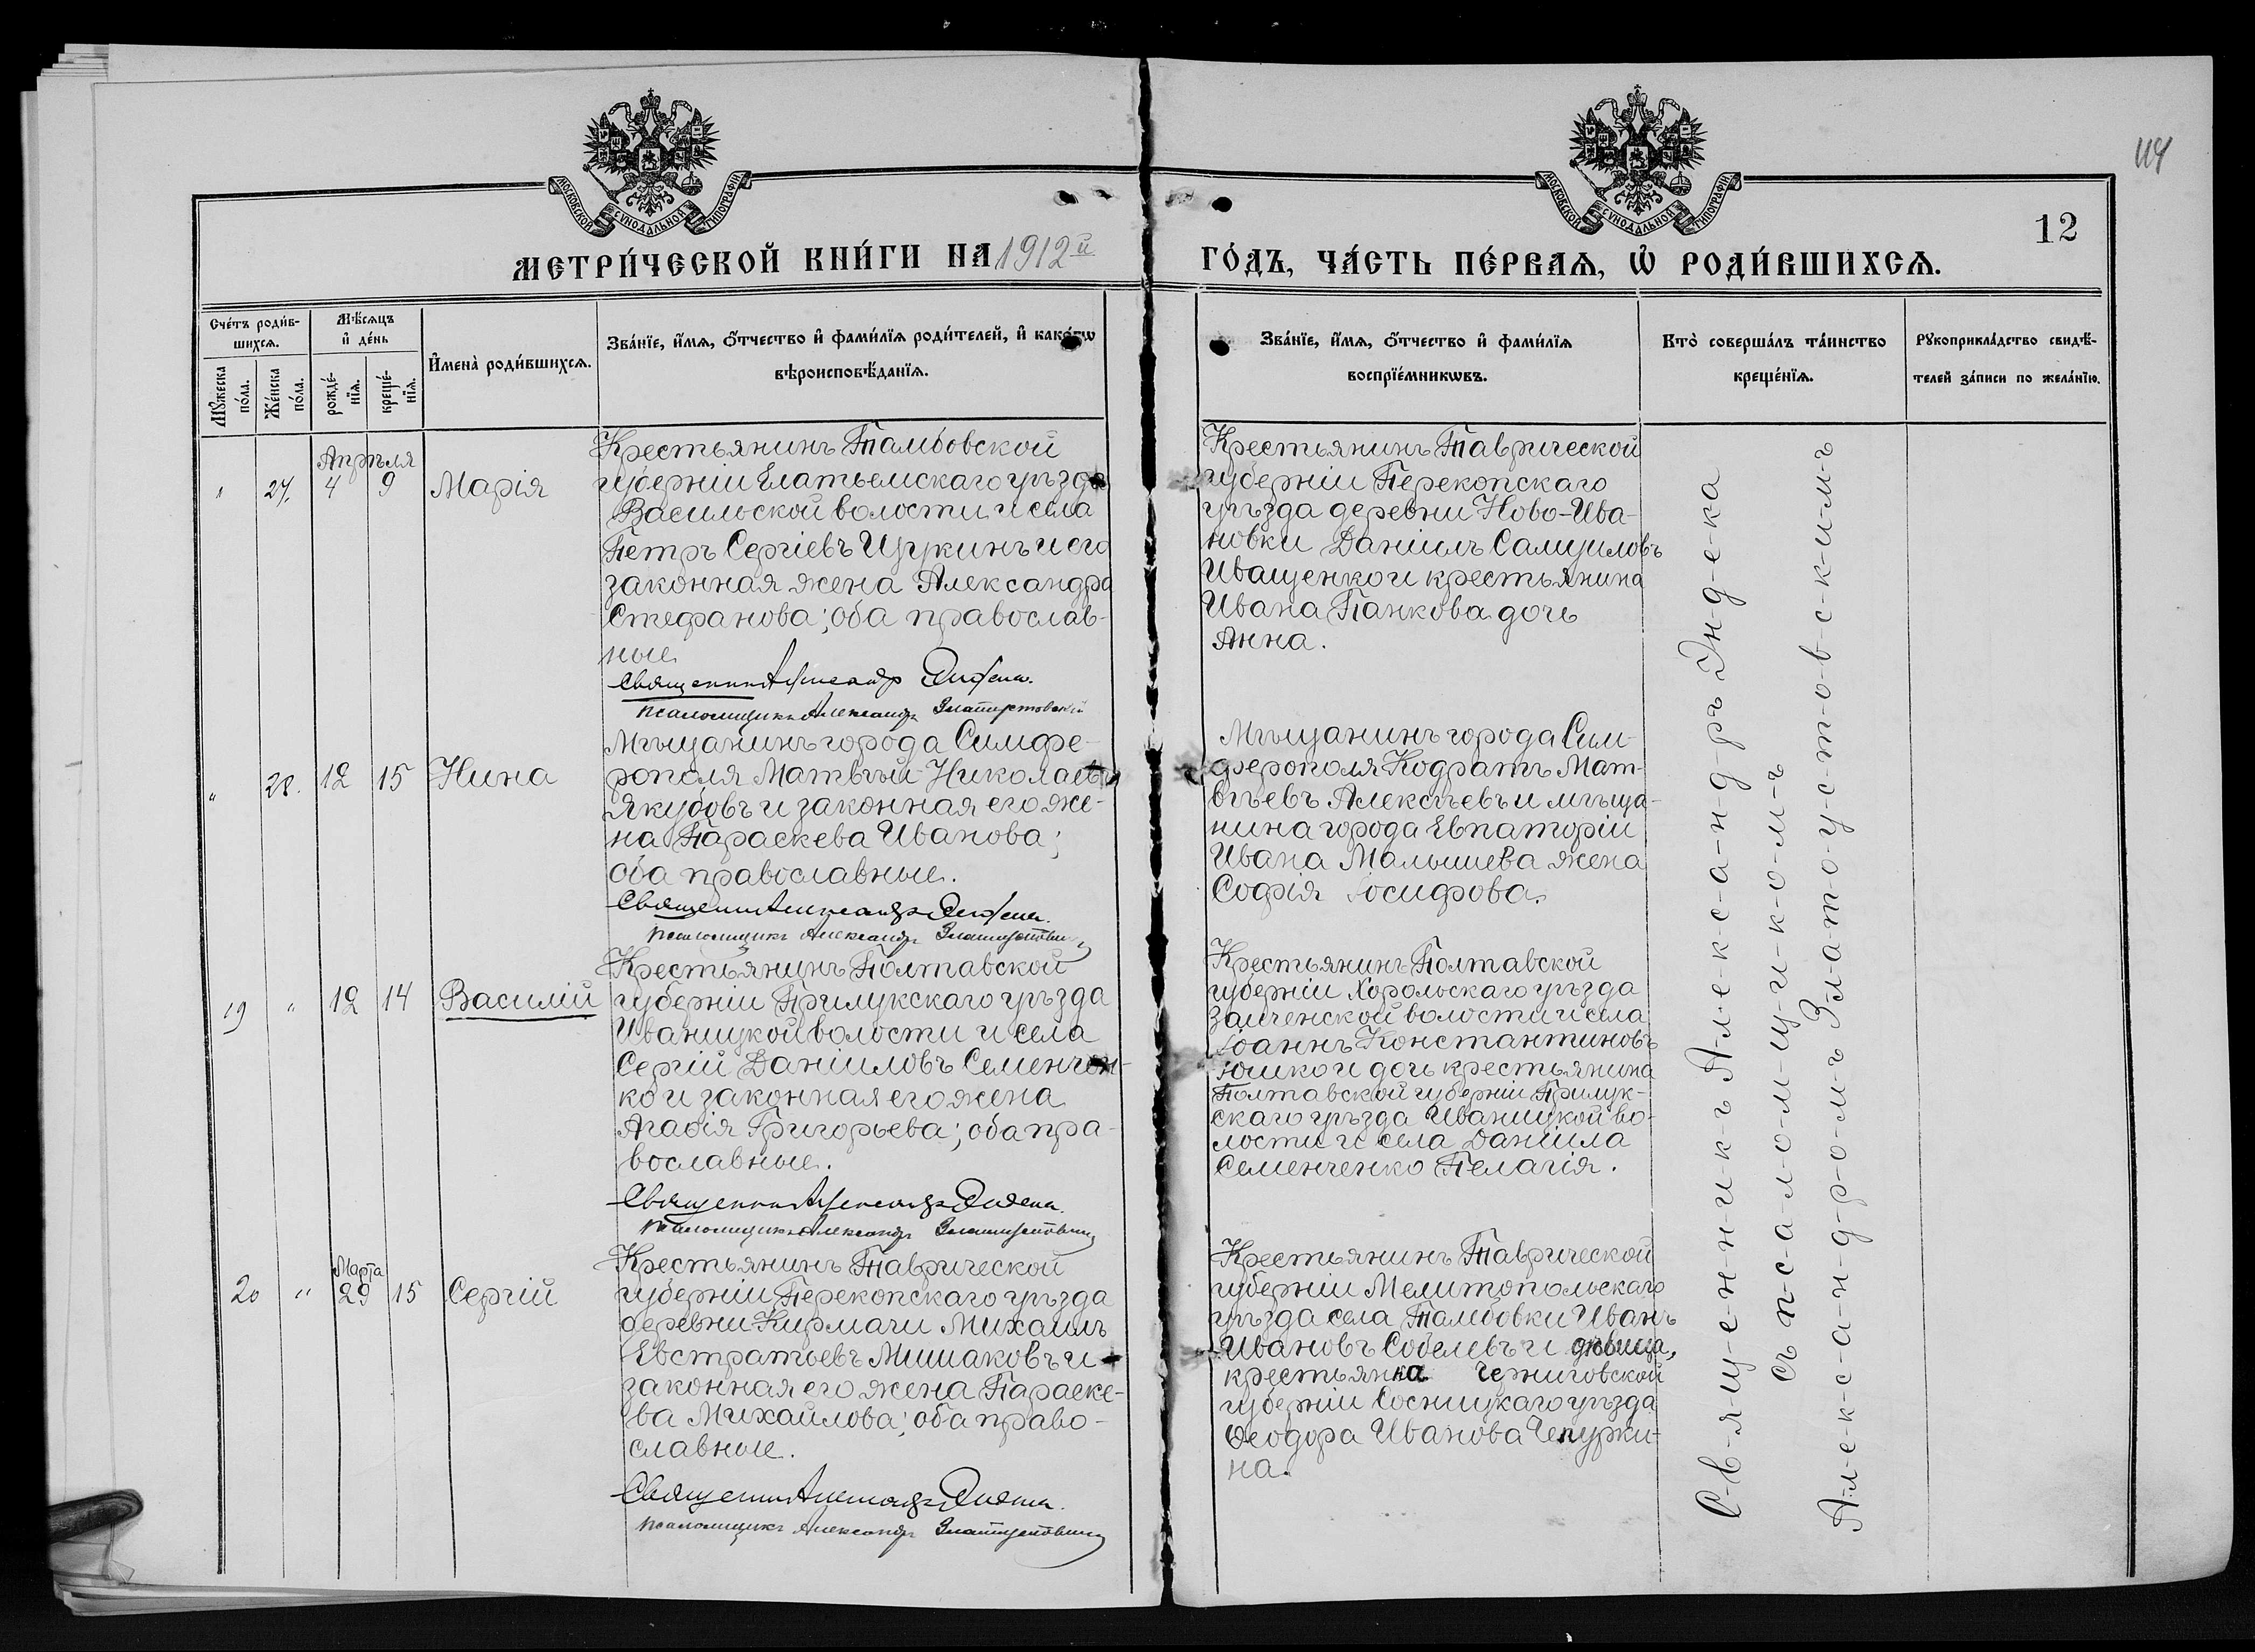 МОСКОВСКОЙ СѴНОДАЛЬНОЙ ТИПОГРАФІИ
МОСКОВСКОЙ СѴНОДАЛЬНОЙ ТИПОГРАФІИ
114
12
МЕТРИ́ЧЕСКОЙ КНИ́ГИ НА 1912й
ГО́ДЪ, ЧА́СТЬ ПЕ́РВАѦ, Ѡ҆ РОДИ́ВШИХСѦ.
Сче́тъ роди́в-
шихсѧ.
Мꙋ́жеска по́ла.
Же́нска по́ла.
Мѣ́сѧцъ и҆ де́нь
рожде́-нїѧ.
креще́-нїѧ.
И҆мена̀ роди́вшихсѧ.
Зва́нїе, и҆́мѧ, ѻ҆́тчество и҆ фами́лїѧ роди́телей, и҆ како́гѡ
вѣроисповѣ́данїѧ.
Зва́нїе, и҆́мѧ, ѻ҆́тчество и҆ фами́лїѧ
воспрїе́мникѡвъ.
Кто̀ соверша́лъ та́инство
креще́нїѧ.
Рꙋкоприкла́дство свидѣ́-
телей за́писи по жела́нїю.
Апрѣля
" 27. 4 9 Марія
Крестьянинъ Тамбовской
губерніи Елатьемскаго уѣзда
Васильской волости и села
Петръ Сергіевъ Щукинъ и его
законная жена Александра
Стефанова; оба православ-
ные.
Священникъ Александр
Псаломщикъ Александръ Златоустовскій
Крестьянинъ Таврической
губерніи Перекопскаго
уѣзда деревни Ново-Ива-
новки Даніилъ Самуиловъ
Иващенко и крестьянина
Ивана Панкова дочь
Анна.
" 28. 12 15 Нина
Мѣщанинъ города Симфе-
рополя Матвѣй Николаевъ
Якубовъ и законная его же-
на Параскева Иванова;
оба православные.
Священникъ Александръ
Псаломщикъ Александръ Златоустовскій
Мѣщанинъ города Сим-
ферополя Кодратъ Мат-
вѣевъ Алексѣевъ и мѣща-
нина города Евпаторіи
Ивана Малышева жена
Софія Іосифова.
19 " 12 14 Василій
Крестьянинъ Полтавской
губерніи Прилукскаго уѣзда
Иваницкой волости и села
Сергій Даніиловъ Семенчен-
ко и законная его жена
Агаѳія Григорьева; оба пра-
вославные.
Священникъ Александръ
Псаломщикъ Александръ Златоустовскій
Крестьянинъ Полтавской
губерніи Хорольскаго уѣзда
Заиченской волости и села
Іоаннъ Константиновъ
Юшко и дочь крестьянина
Полтавской губерніи Прилук-
скаго уѣзда Иваницкой во-
лости и села Даніила
Семенченко Пелагія.
Марта
20 " 29 15 Сергій
Крестьянинъ Таврической
губерніи Перекопскаго уѣзда
деревни Кирмачи Михаилъ
Евстратьевъ Мишаковъ и
законная его жена Параске-
ва Михаилова; оба право-
славные.
Священникъ Александръ
Псаломщикъ Александръ Златоустовскій
Крестьянинъ Таврической
губерніи Мелитопольскаго
уѣзда села Тамбовки Иванъ
Ивановъ Соболевъ и дѣвица,
крестьянка Черниговской
губерніи Сосницкаго уѣзда
Ѳеодора Иванова Чепурки-
на.
С-в-я-щ-е-н-н-и-к-ъ А-л-е-к-с-а-н-д-р-ъ Энд-е-ка
съ п-с-а-л-о-м-щ-и-к-о-м-ъ
А-л-е-к-с-а-н-д-р-о-м-ъ З-л-а-т-о-у-с-т-о-в-с-к-и-м-ъ